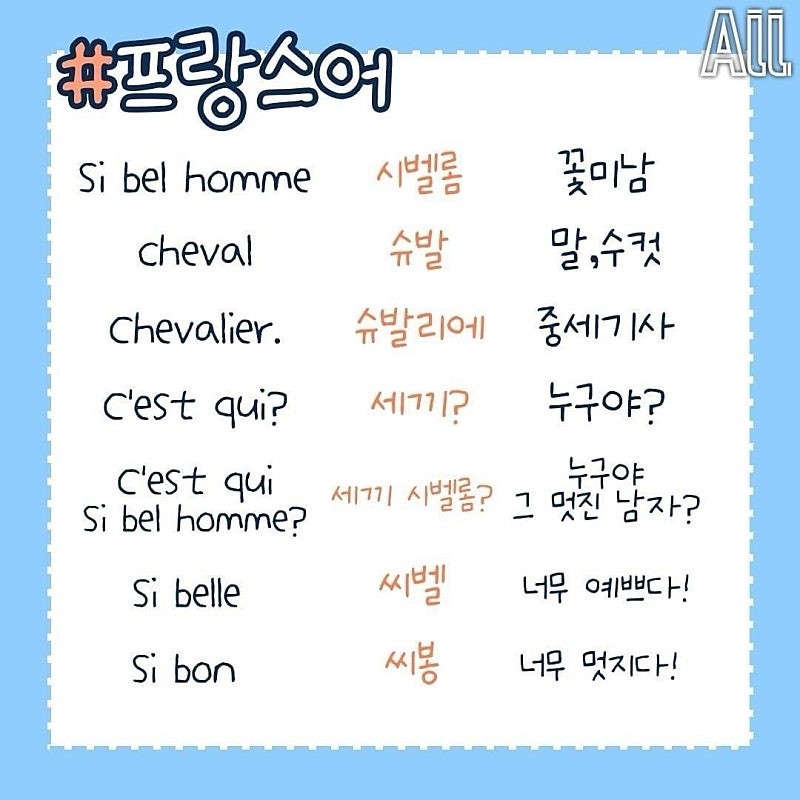 All
#프랑스어
Si bel homme 시벨롬 꽃미남
cheval 슈발 말,수컷
Chevalier. 슈발리에 중세기사
C'est qui? 세끼? 누구야?
C'est qui
Si bel homme? 세끼 시벨롬? 누구야
그 멋진 남자?
Si belle 씨벨 너무 예쁘다!
Si bon 씨봉 너무 멋지다!